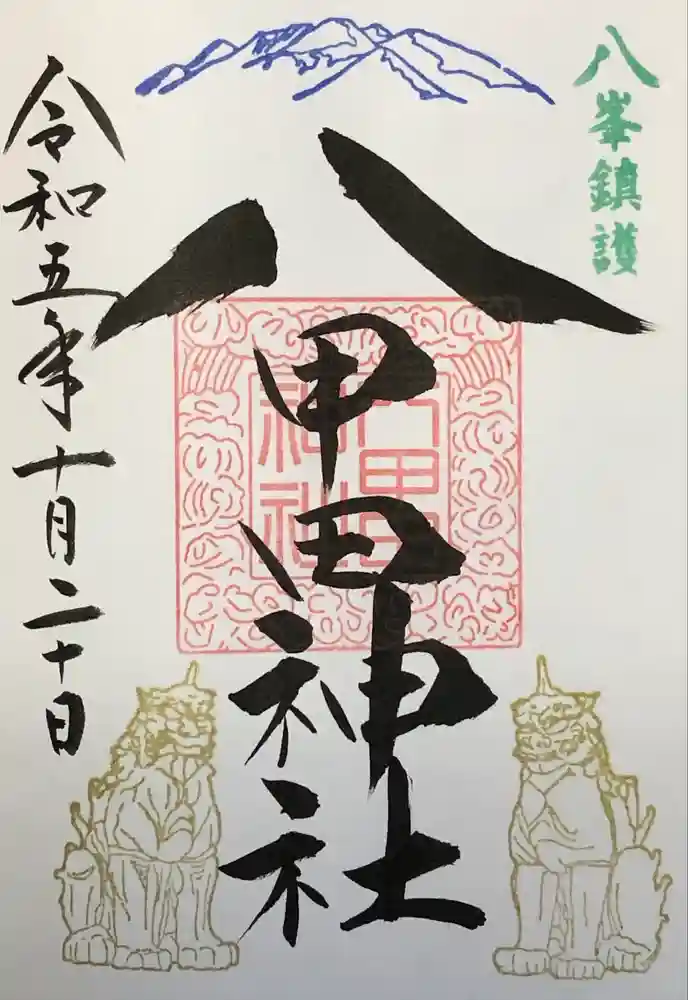 八峯鎮護
八甲田神社
八甲田
神社
令和五年十月二十日